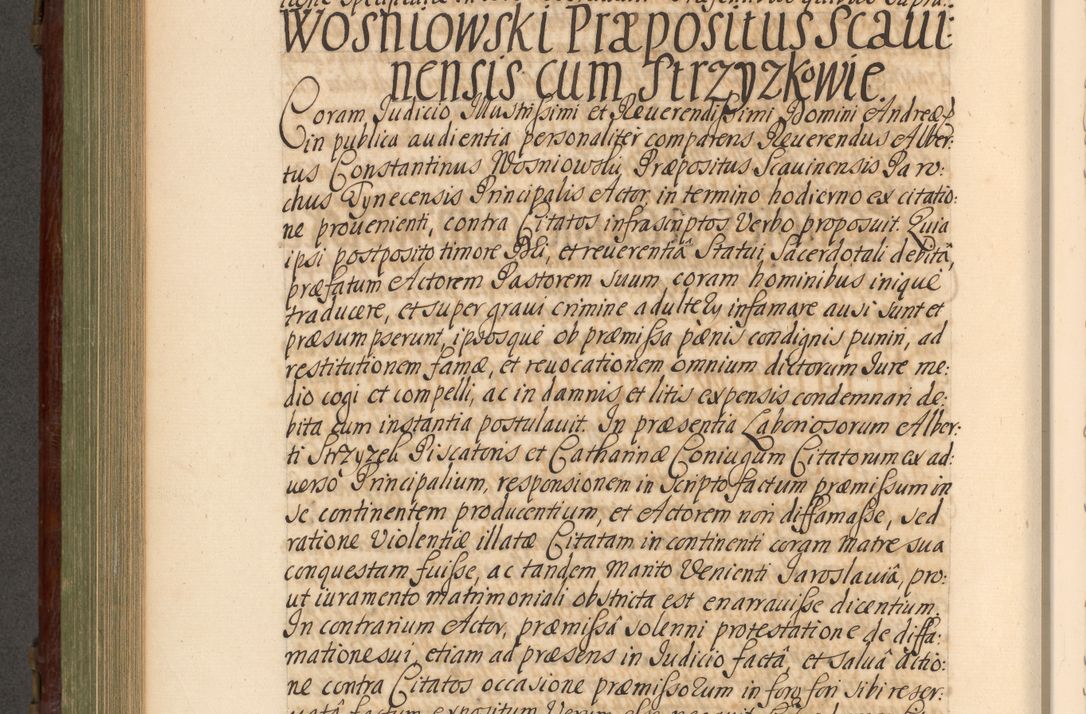 Wosniowski Præpositus Scaui:
nensis cum Strzyzkowie.
Coram Judicio Illustrissimi et Reuerendissimi Domini Andreæ &
in publica audientia personaliter comparens Reuerendus Alber:
tus Constantinus Wosniowski, Præpositus Scauinensis Paro:
chus Tynecensis Principalis Actor, in termino hodierno ex citatio:
ne prouenienti, contra Citatos infrascriptos Verbo proposuit. Quia
ipsi postposito timore Dei, et reuerentiâ Statui Sacerdotali debitâ,
præfatum Actorem Pastorem suum coram hominibus iniquè
traducere, et super graui crimine adultery infamare ausi sunt et
præsumpserunt, ipsosque ob præmissa pænis condignis puniri, ad
restitutionem famæ, et reuocationem omnium dictorum Jure me:
dio cogi et compelli, ac in damnis et litis expensis condemnari de:
bita cum instantia postulauit. In præsentia Laboriosorum Alber:
ti Strzyzek Piscatoris et Catharinæ Coniugum Citatorum ex ad:
uerso Principalium, responsionem in Scripto factum præmissum in
se continentem producentium, et Actorem non diffamasse, sed
ratione Violentiæ illatæ Citatam in continenti coram Matre sua
conquestam fuisse, ac tandem Manto Venienti Jaroslauiâ, pro:
ut iuramento matrimoniali obstricta est enarrauisse dicentium.
In contrarium Actor, præmissâ solenni protestatione de diffa:
matione sui etiam ad præsens in Judicio factâ, et saluâ actio:
ne contra Citatos occasione præmissorum in foro fori sibi reser: